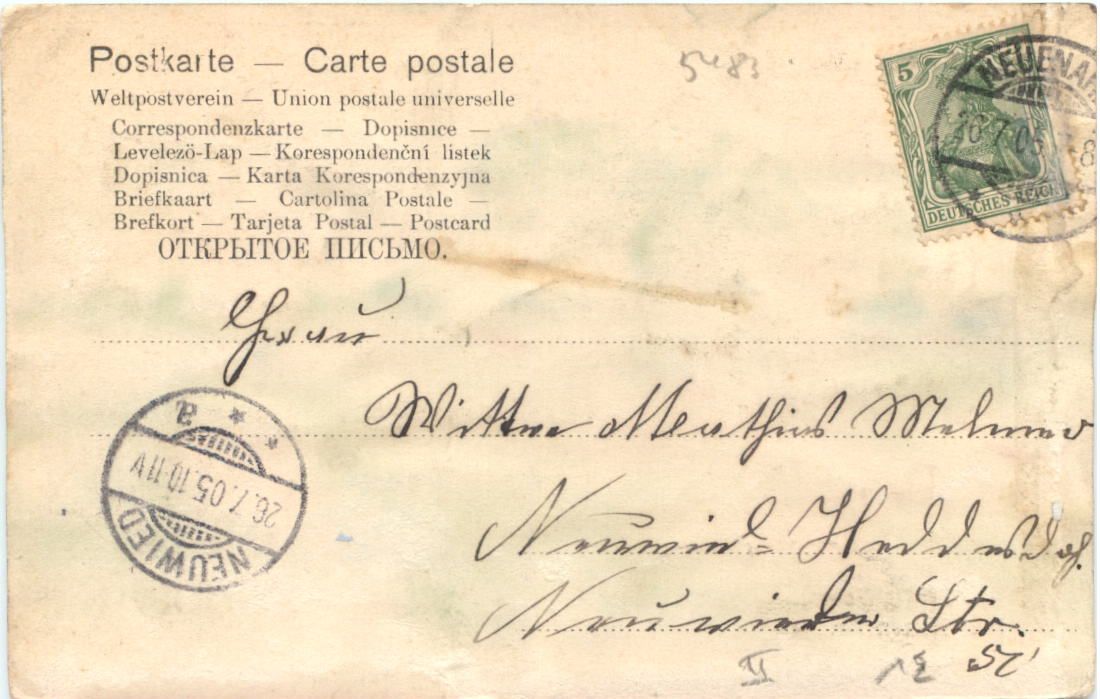 Postkarte — Carte postale
Weltpostverein — Union postale universelle
Correspondenzkarte — Dopisnice —
Levelező-Lap — Korespondenční listek
Dopisnica — Karta Korespondenzyjna
Briefkaart — Cartolina Postale —
Brefkort — Tarjeta Postal — Postcard
ОТКРЫТОЕ ПИСЬМО.
5483
5
DEUTSCHES REICH
NEUENAH
26.7.05
8
Frau
Wittwe Mathias
Neuwied-Heddesdof.
Neuwieder Str.
II 12
NEUWIED
26.7.05.10-11V
* * a